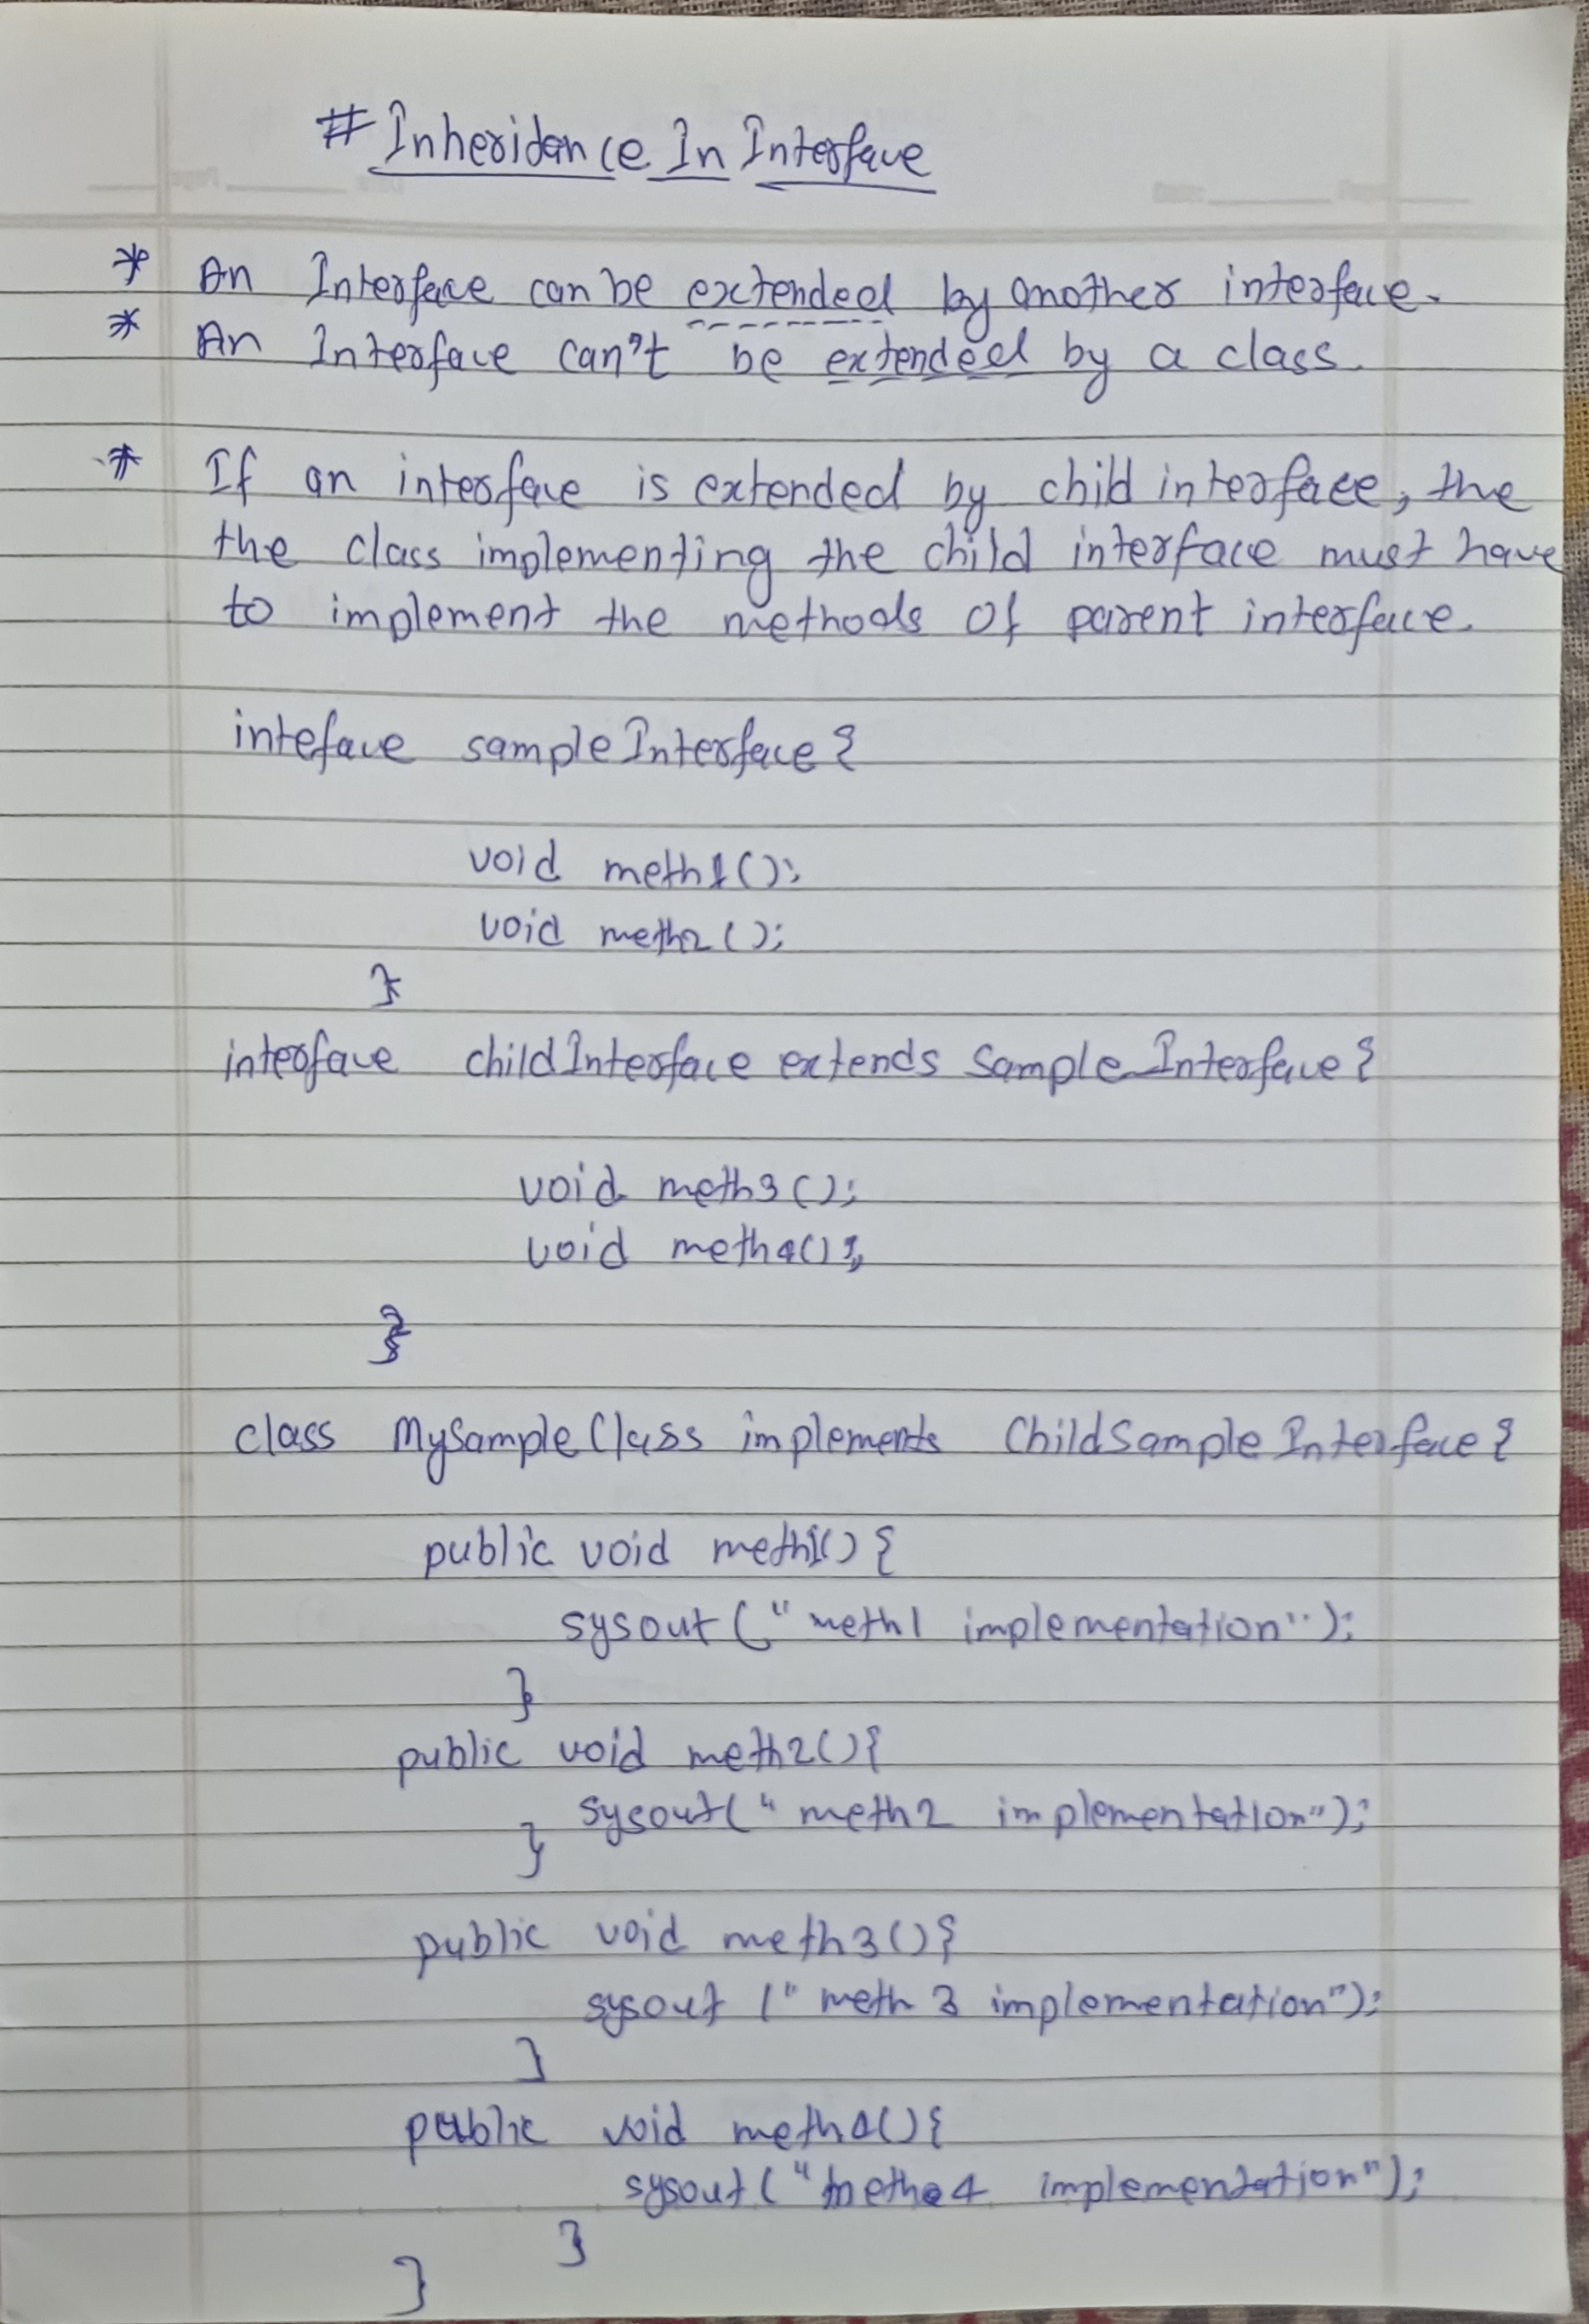 # Inheridance In Interface
* An Interface can be extended by another interface.
* An Interface can't be extended by a class.
* If an interface is extended by child interface, the
the class implementing the child interface must have
to implement the methods of parent interface.
inteface sampleInterface {
void meth1();
void meth2();
}
interface childInterface extends SampleInterface {
void meth3();
void meth4();
}
class MySampleClass implements ChildSampleInterface {
public void meth1() {
sysout("meth1 implementation");
}
public void meth2() {
sysout("meth2 implementation");
}
public void meth3() {
sysout ("meth 3 implementation");
}
public void meth4() {
sysout("meth4 implementation");
}
}